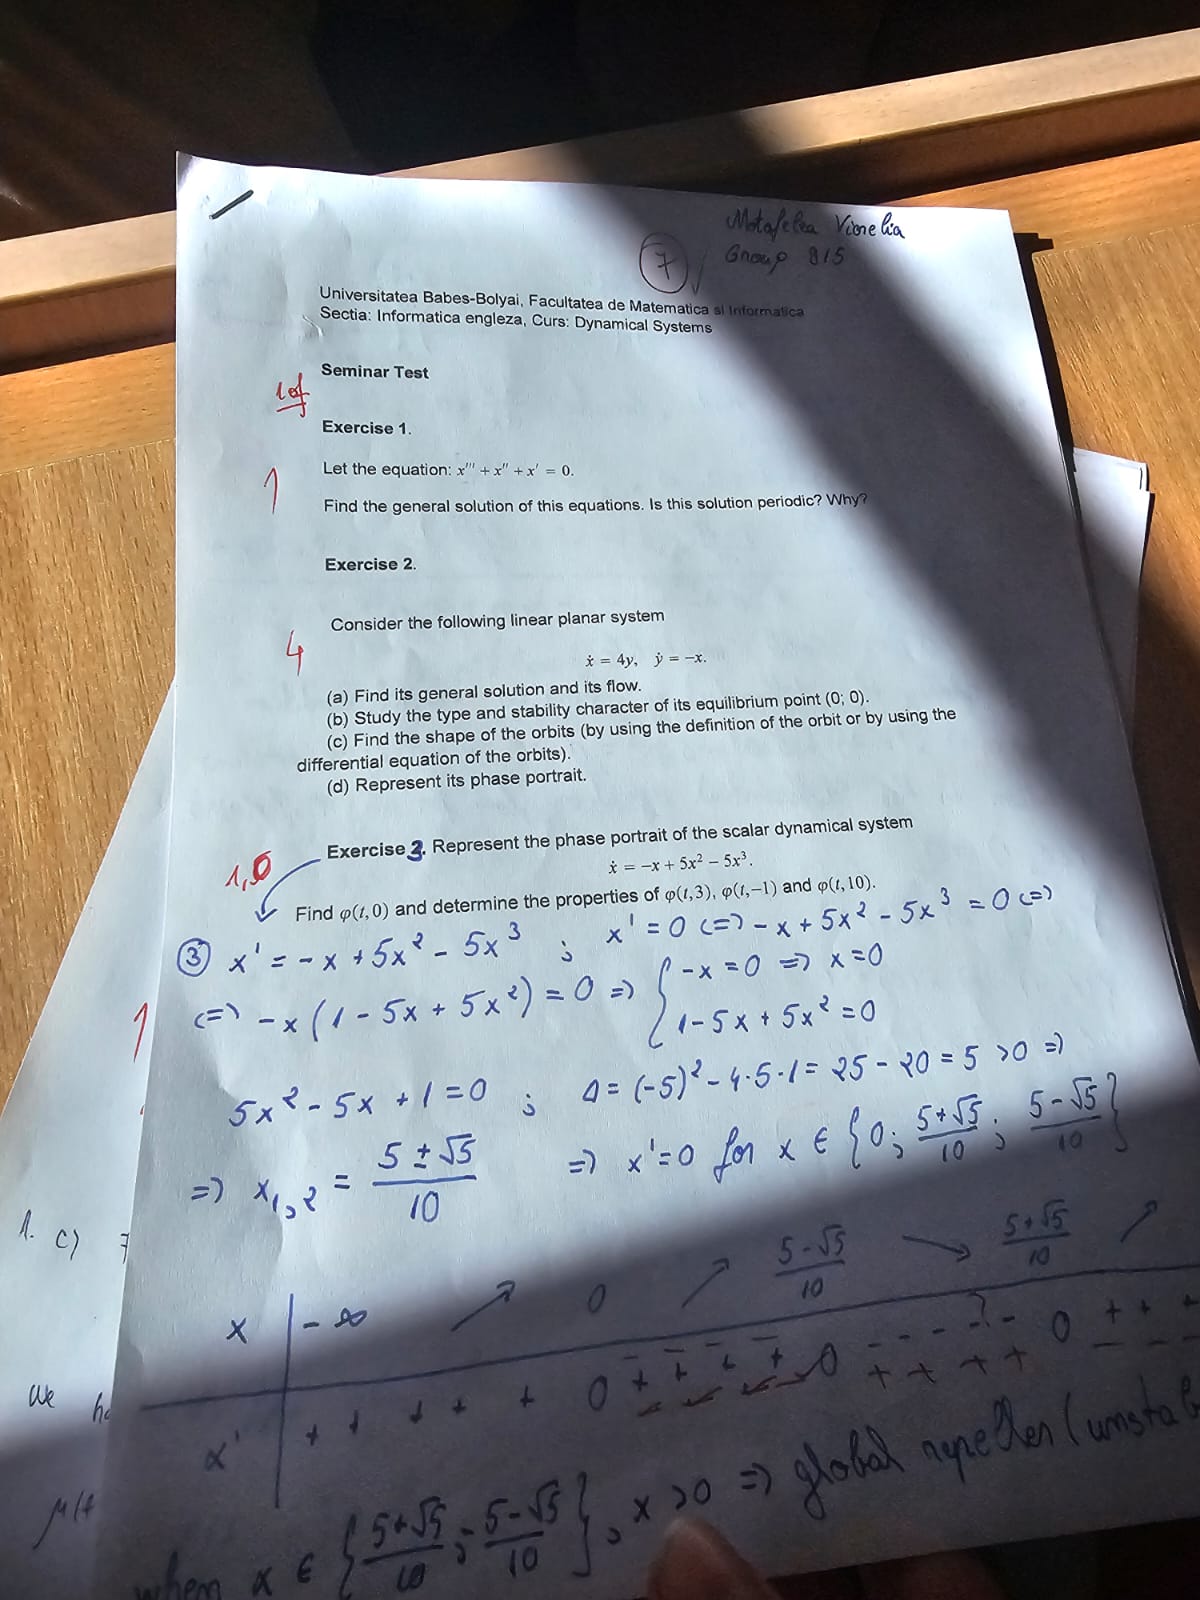 Motafelea Viorelia
Group 815
7
Universitatea Babes-Bolyai, Facultatea de Matematica si Informatica
Sectia: Informatica engleza, Curs: Dynamical Systems
Seminar Test
1of
Exercise 1.
Let the equation: x''' + x'' + x' = 0.
1
Find the general solution of this equations. Is this solution periodic? Why?
Exercise 2.
Consider the following linear planar system
4
ẋ = 4y, ẏ = −x.
(a) Find its general solution and its flow.
(b) Study the type and stability character of its equilibrium point (0; 0).
(c) Find the shape of the orbits (by using the definition of the orbit or by using the
differential equation of the orbits).
(d) Represent its phase portrait.
Exercise 3. Represent the phase portrait of the scalar dynamical system
1,0
ẋ = −x + 5x² − 5x³.
Find φ(t,0) and determine the properties of φ(t,3), φ(t,−1) and φ(t,10).
③ x' = -x + 5x² - 5x³ ; x' = 0 <=> -x + 5x² - 5x³ = 0 <=>
1
<=> -x(1 - 5x + 5x²) = 0 => { -x = 0 => x = 0
1 - 5x + 5x² = 0
5x² - 5x + 1 = 0 ; Δ = (-5)² - 4·5·1 = 25 - 20 = 5 > 0 =>
=> x₁,₂ = (5 ± √5)/10 => x' = 0 for x ∈ {0; (5+√5)/10; (5-√5)/10}
1. c)
x | -∞ ↗ 0 ↗ (5-√5)/10 ↘ (5+√5)/10 ↗
x' + + + + + 0 + + + + 0 - - - - - 0 + + +
- - - - + + + + - - -
We
when x ∈ {(5+√5)/10; (5-√5)/10}, x > 0 => global repeller (unstab